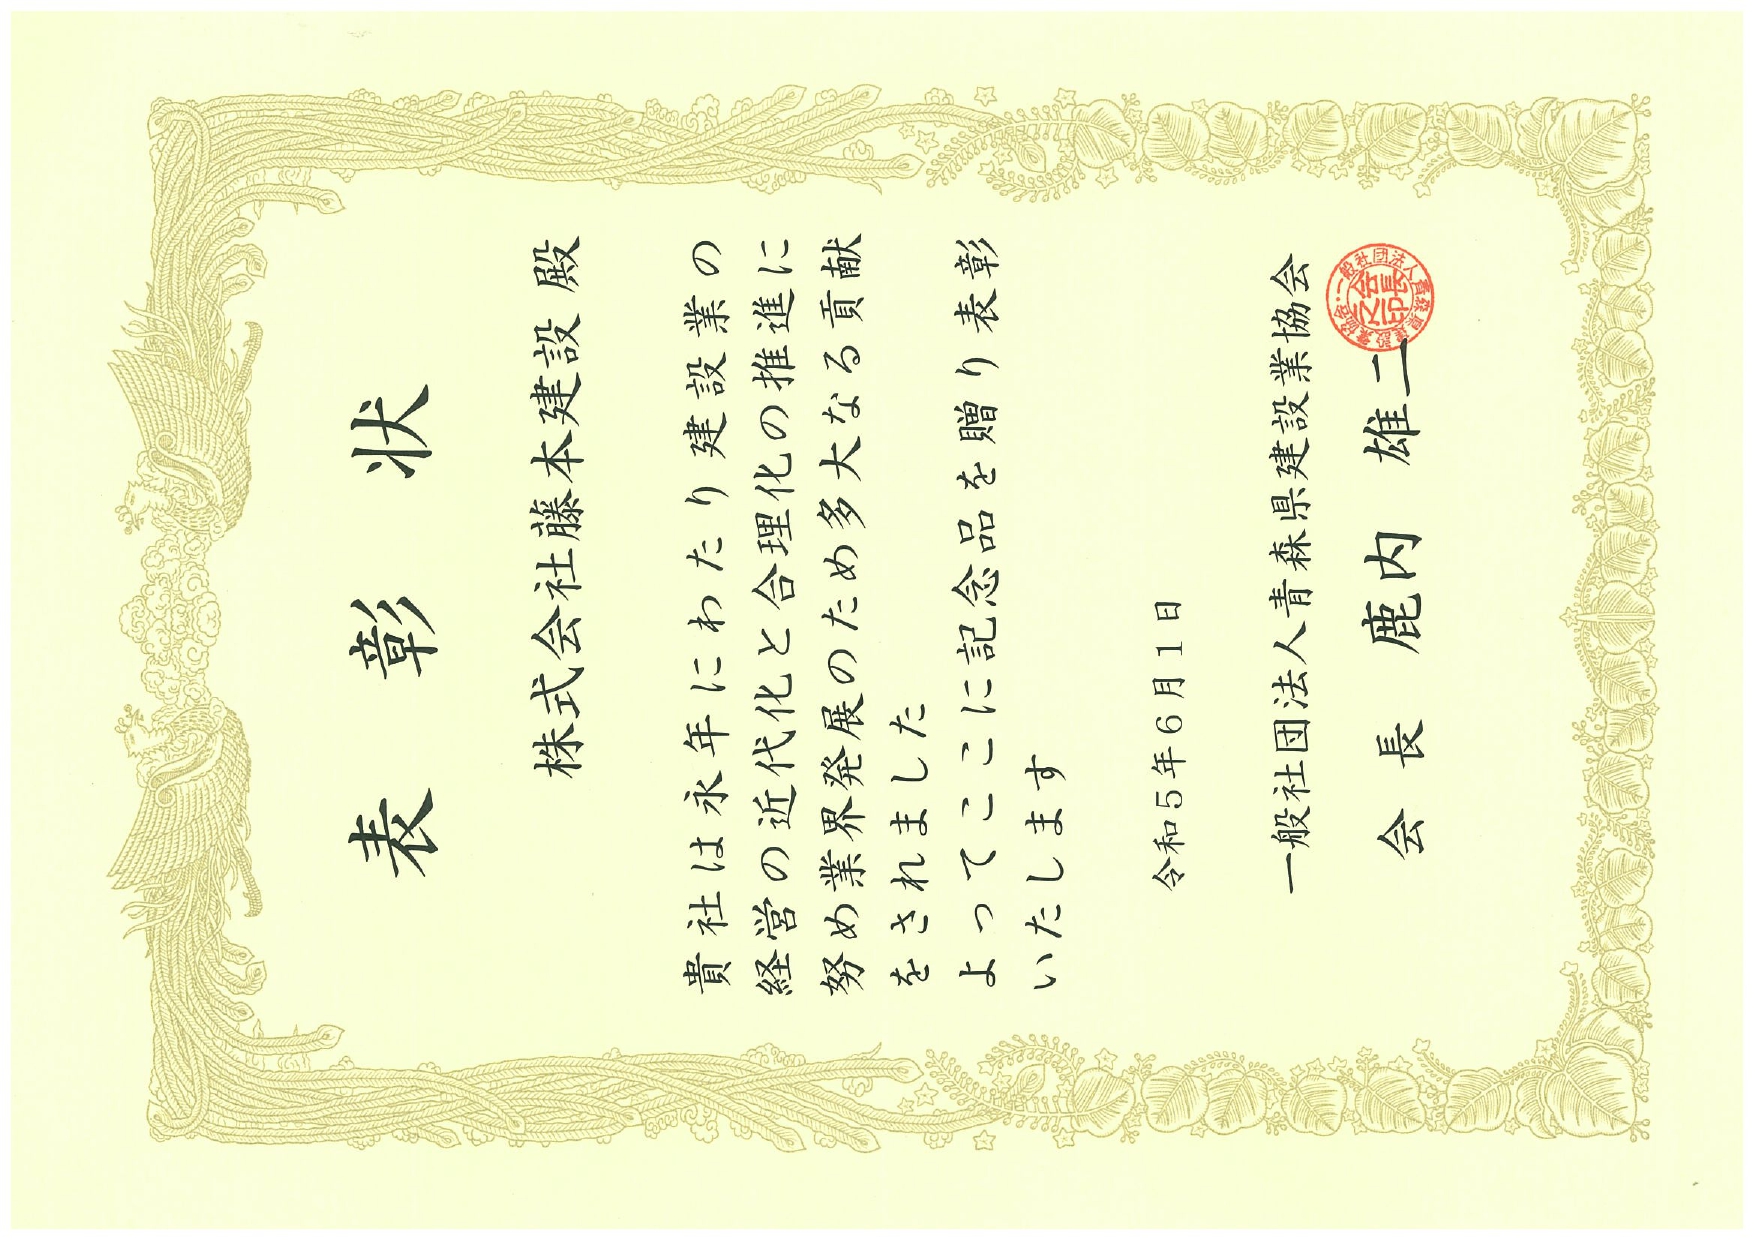 表彰状
株式会社藤本建設 殿
貴社は永年にわたり建設業の
経営の近代化と合理化の推進に
努め業界発展のため多大なる貢献
をされました
よってここに記念品を贈り表彰
いたします
令和5年6月1日
一般社団法人青森県建設業協会
会長 鹿内 雄二
一般社団法人青森県建設業協会・
会長之印